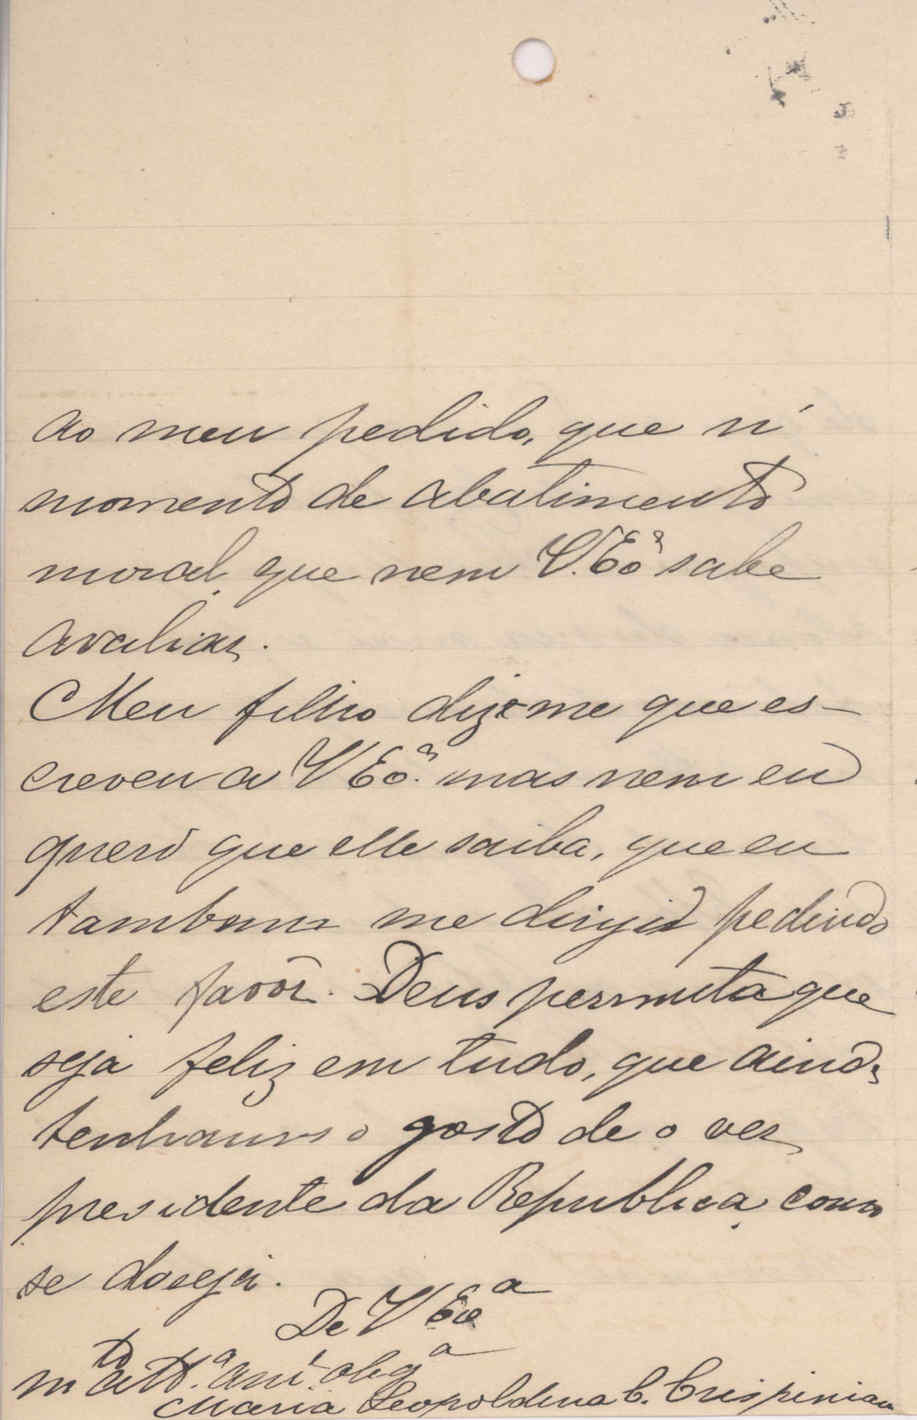 ao meu pedido, que n'
momento de abatimento
moral, que nem V. Eª sabe
avaliar.
Meu filho diz-me que es-
creveu a V Eª. mas nem eu
quero que elle saiba, que eu
tambem me dirijo pedindo
este favor. Deus permita que
seja feliz em tudo, que ainda
tenhamos o gosto de o ver
presidente da Republica, como
se deseja.
De V Eª
mto attª. ami. obgª
Maria Leopoldina C. Crispinian